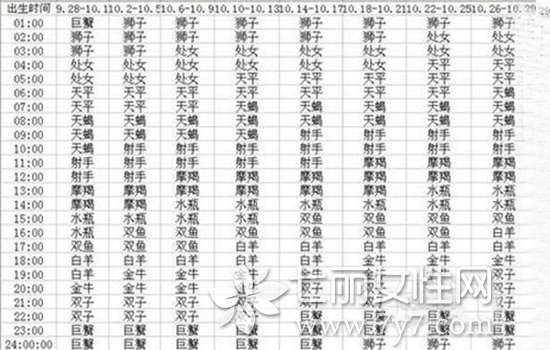 出生时间 9.28-10.1 10.2-10.5 10.6-10.9 10.10-10.13 10.14-10.17 10.18-10.21 10.22-10.25 10.26-10.29
01:00 巨蟹 狮子 狮子 狮子 狮子 狮子 狮子 狮子
02:00 狮子 狮子 狮子 狮子 狮子 狮子 处女 处女
03:00 狮子 狮子 处女 处女 处女 处女 处女 处女
04:00 处女 处女 处女 处女 处女 处女 天平 天平
05:00 处女 处女 处女 天平 天平 天平 天平 天平
06:00 天平 天平 天平 天平 天平 天平 天平 天蝎
07:00 天平 天平 天蝎 天蝎 天蝎 天蝎 天蝎 天蝎
08:00 天蝎 天蝎 天蝎 天蝎 天蝎 天蝎 天蝎 天蝎
09:00 天蝎 天蝎 天蝎 射手 射手 射手 射手 射手
10:00 天蝎 射手 射手 射手 射手 射手 射手 射手
11:00 射手 射手 射手 射手 射手 摩羯 摩羯 摩羯
12:00 射手 射手 摩羯 摩羯 摩羯 摩羯 摩羯 摩羯
13:00 摩羯 摩羯 摩羯 摩羯 摩羯 摩羯 水瓶 水瓶
14:00 摩羯 摩羯 水瓶 水瓶 水瓶 水瓶 水瓶 水瓶
15:00 水瓶 水瓶 水瓶 水瓶 双鱼 双鱼 双鱼 双鱼
16:00 水瓶 双鱼 双鱼 双鱼 双鱼 双鱼 白羊 白羊
17:00 双鱼 双鱼 双鱼 白羊 白羊 白羊 白羊 白羊
18:00 白羊 白羊 白羊 白羊 白羊 金牛 金牛 金牛
19:00 白羊 金牛 金牛 金牛 金牛 双子
20:00 金牛 金牛 金牛 双子 双子
21:00 双子 双子 双子 双子
22:00 双子 双子 双子 巨蟹
23:00 巨蟹 巨蟹 巨蟹 巨蟹
24:00:00 巨蟹 巨蟹 巨蟹 巨蟹 巨蟹 狮子 狮子 狮子
丽女性网
www.7y7.com